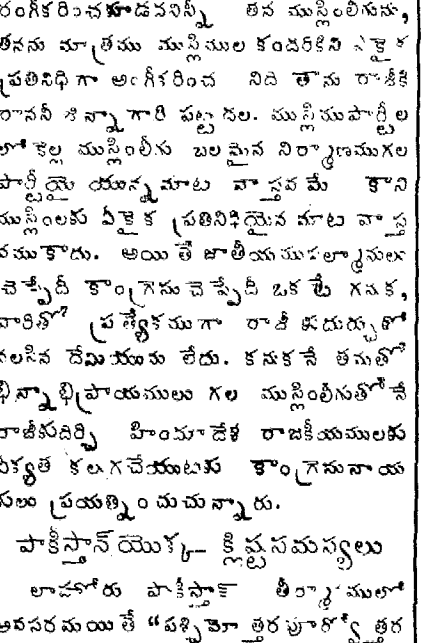 రంగీకరించకూడదనిన్నీ తన ముస్లింలీగును,
తనను మాత్రము ముస్లిముల కందరికిని ఏకైక
ప్రతినిధిగా అంగీకరించ నిది తాను రాజీకి
రానని జిన్నాగారి పట్టుదల. ముస్లిముపార్టీల
లో కెల్ల ముస్లింలీగు బలమైన నిర్మాణముగల
పార్టీయై యున్నమాట వాస్తవమే కాని
ముస్లింలకు ఏకైక ప్రతినిధియైన మాట వాస్త
వముకాదు. అయితే జాతీయముసల్మానులు
చెప్పేదీ కాంగ్రెసు చెప్పేదీ ఒకటే గనుక,
వారితో ప్రత్యేకముగా రాజీ కుదుర్చుకో
వలసిన దేమియును లేదు. కనుకనే తమతో
భిన్నాభిప్రాయములు గల ముస్లింలీగుతోనే
రాజీకుదిర్చి హిందూదేశ రాజకీయములకు
ఐక్యత కలుగచేయుటకు కాంగ్రెసునాయ
కులు ప్రయత్నించుచున్నారు.
పాకిస్తాన్ యొక్క క్లిష్టసమస్యలు
లాహోరు పాకిస్తాన్ తీర్మానములో
అవసరమయితే “పశ్చిమోత్తరపూర్వోత్తర